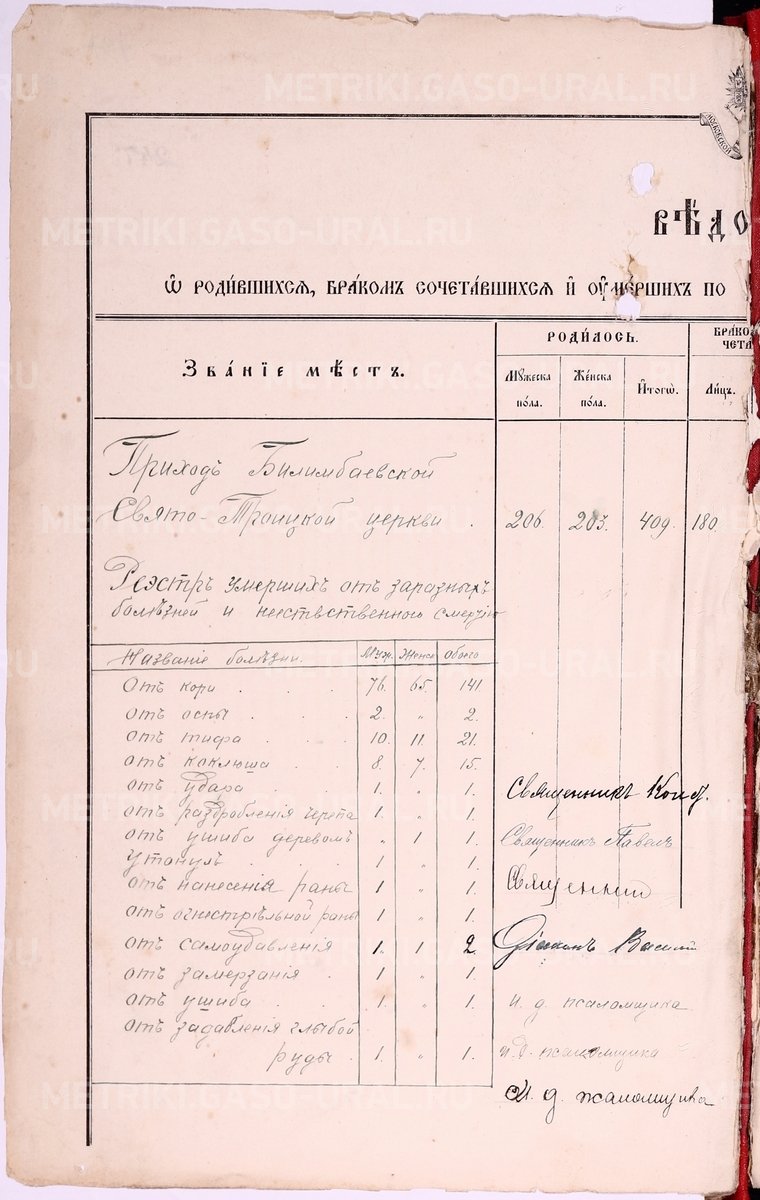 МОСКОВСКОЙ
ВѢДО
Ѡ РОДИ́ВШИХСЯ, БРА́КОМЪ СОЧЕТА́ВШИХСЯ И҆ ОУ҆МЕ́РШИХЪ ПО
ЗВА́НІЕ МѢ́СТЪ.
РОДИ́ЛОСЬ.
БРА́КО
ЧЕТА
МꙊЖЕСКА ПО́ЛА.
ЖЕ́НСКА ПО́ЛА.
И҆ТОГѠ̀.
ЛИ́ЦЪ.
Приходъ Билимбаевской
Свято-Троицкой церкви. 206. 203. 409. 180.
Реэстръ умершихъ отъ заразныхъ
болѣзней и неествственною смертію
Названіе болѣзни. Муж. Женс. Обоего
Отъ кори . . . 76. 65. 141.
отъ оспы . . . 2. " 2.
отъ тифа . . . 10. 11. 21.
отъ коклюша . . 8. 7. 15.
отъ удара . . . 1. " 1.
отъ раздробленія черепа 1. " 1.
отъ ушиба деревомъ " 1 1.
утонулъ . . . 1 " 1.
отъ нанесенія раны 1 " 1.
отъ огнестрѣльной раны 1 " 1.
отъ самоудавленія 1. 1 2
отъ замерзанія . 1. " 1.
отъ ушиба . . . 1. " 1.
отъ задавленія глыбой
руды . 1. " 1.
Священникъ
Священникъ Павелъ
Священникъ
Діаконъ Василій
и. д. псаломщика
и. д. псаломщика
И. д. псаломщика
METRIKI.GASO-URAL.RU